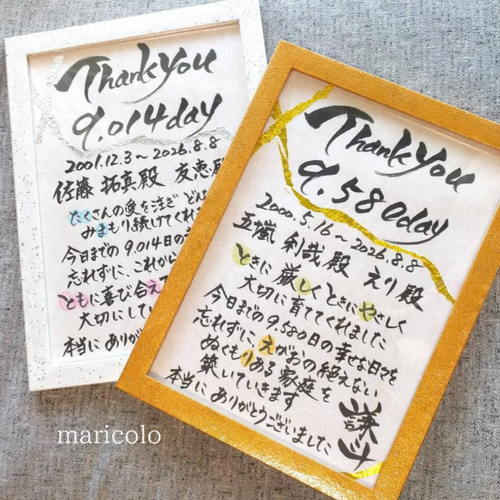 Thank you
9.014day
2001.12.3~2026.8.8
佐藤 拓真殿 友恵殿
たくさんの愛を注ぎ どん
みまもり続けてくれ
今日までの9.014日の幸
忘れずに、これから
ともに喜び合え
大切にしてい
本当にありが
Thank you
9.580day
2000.5.16~2026.8.8
五嵐 利哉殿 えり殿
ときに厳しくときにやさしく
大切に育ててくれました
今日までの9.580日の幸せな日々を
忘れずに、えがおの絶えない
ぬくもりある家庭を
築いていきます
本当にありがとうございました
maricolo